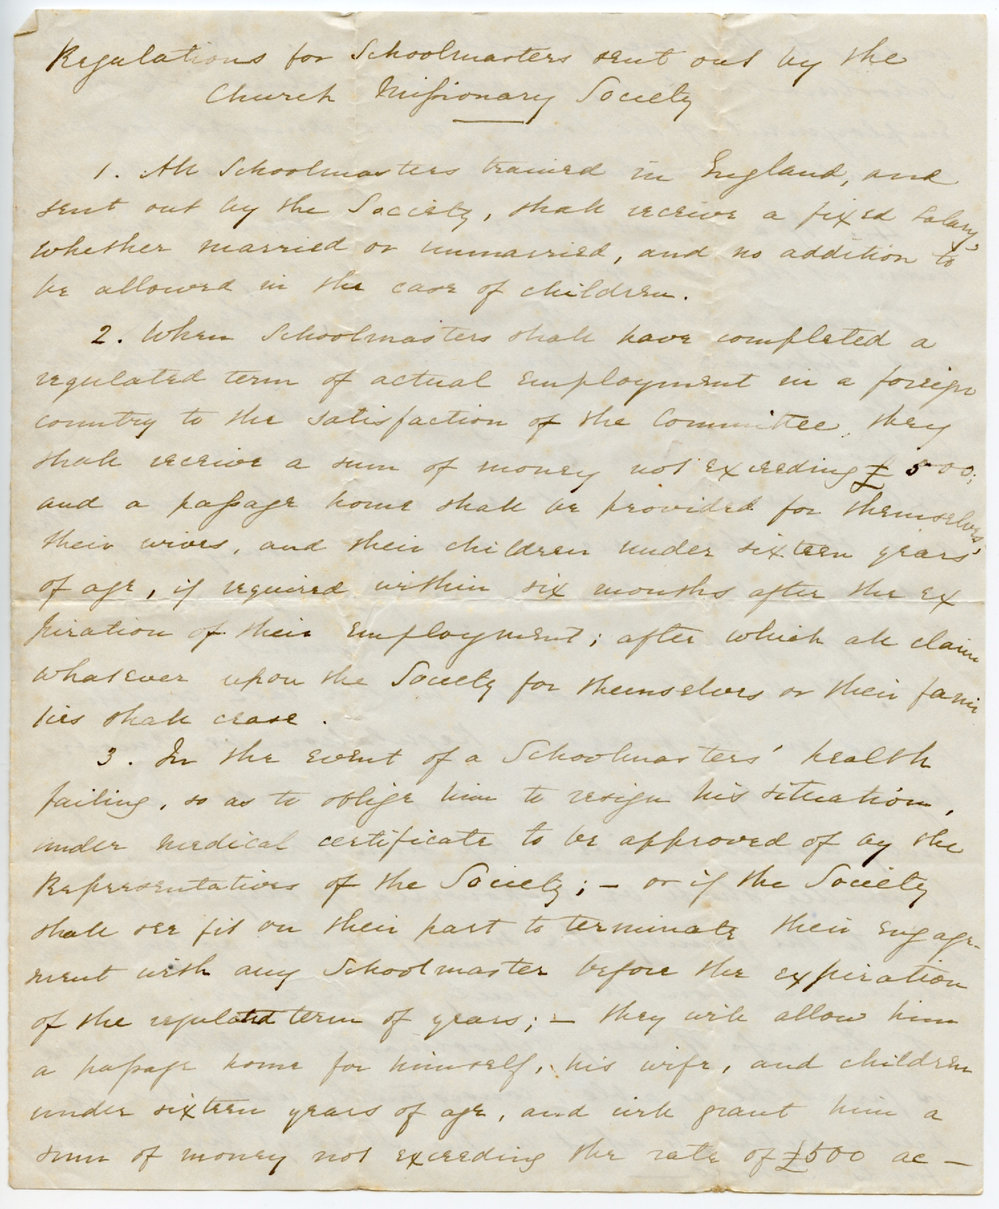 Regulations for Schoolmasters sent out by the
Church Missionary Society
1. All Schoolmasters trained in England, and
sent out by the Society, shall receive a fixed Salary,
whether married or unmarried, and no addition to
be allowed in the case of children.
2. When Schoolmasters shall have completed a
regulated term of actual employment in a foreign
country to the satisfaction of the Committee, they
shall receive a sum of money not exceeding £500;
and a passage home shall be provided for themselves,
their wives, and their children under sixteen years
of age, if required within six months after the ex
piration of their employment; after which all claim
whatever upon the Society for themselves or their fami
lies shall cease.
3. In the event of a Schoolmasters' health
failing, so as to oblige him to resign his situation,
under medical certificate to be approved of by the
Representatives of the Society; – or if the Society
shall see fit on their part to terminate their engage-
ment with any Schoolmaster before the expiration
of the regulated term of years; – they will allow him
a passage home for himself, his wife, and children
under sixteen years of age, and will grant him a
sum of money not exceeding the rate of £500 ac –